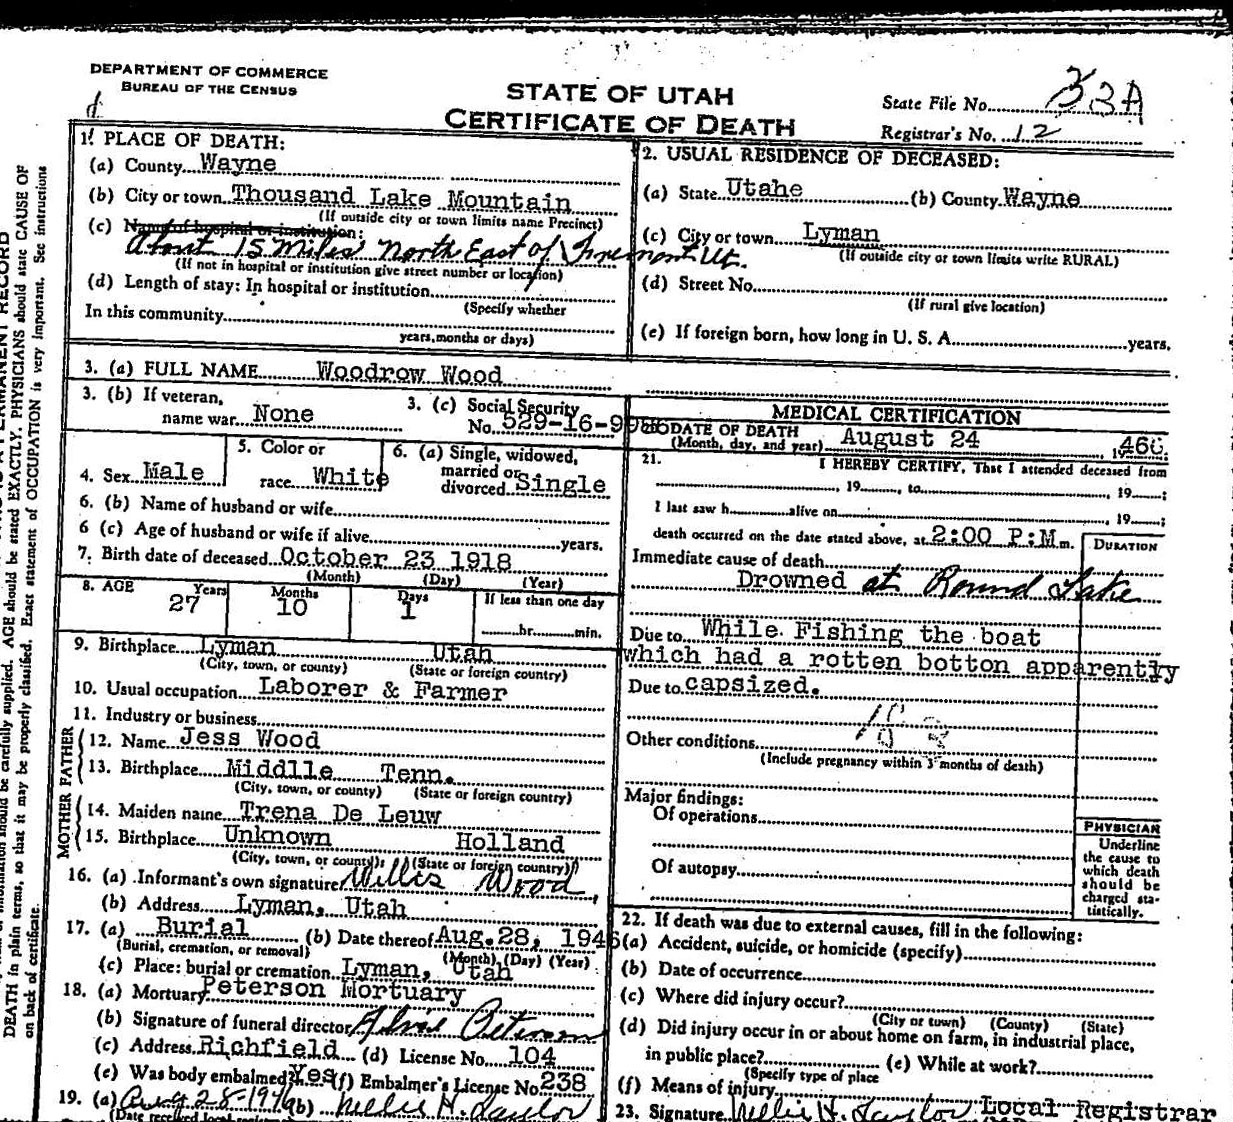 DEPARTMENT OF COMMERCE
BUREAU OF THE CENSUS
STATE OF UTAH
CERTIFICATE OF DEATH
State File No. 33A
Registrar's No. 12
1. PLACE OF DEATH:
(a) County Wayne
(b) City or town Thousand Lake Mountain
(If outside city or town limits name Precinct)
(c) Name of hospital or institution:
About 15 Miles North East of Fremont Ut.
(If not in hospital or institution give street number or location)
(d) Length of stay: In hospital or institution
(Specify whether
In this community
years, months or days)
2. USUAL RESIDENCE OF DECEASED:
(a) State Utahe (b) County Wayne
(c) City or town Lyman
(If outside city or town limits write RURAL)
(d) Street No.
(If rural give location)
(e) If foreign born, how long in U. S. A. years.
3. (a) FULL NAME Woodrow Wood
3. (b) If veteran,
name war None
3. (c) Social Security
No. 529-16-9
4. Sex Male
5. Color or
race White
6. (a) Single, widowed,
married or
divorced Single
6. (b) Name of husband or wife
6 (c) Age of husband or wife if alive years.
7. Birth date of deceased October 23 1918
(Month) (Day) (Year)
8. AGE Years Months Days If less than one day
27 10 1 hr. min.
9. Birthplace Lyman Utah
(City, town, or county) (State or foreign country)
10. Usual occupation Laborer & Farmer
11. Industry or business
FATHER
12. Name Jess Wood
13. Birthplace Middlle Tenn.
(City, town, or county) (State or foreign country)
MOTHER
14. Maiden name Trena De Leuw
15. Birthplace Unknown Holland
(City, town, or county) (State or foreign country)
16. (a) Informant's own signature Willis Wood
(b) Address Lyman, Utah
17. (a) Burial (b) Date thereof Aug. 28, 1946
(Burial, cremation, or removal) (Month) (Day) (Year)
(c) Place: burial or cremation Lyman, Utah
18. (a) Mortuary Peterson Mortuary
(b) Signature of funeral director
(c) Address Richfield (d) License No. 104
(e) Was body embalmed Yes (f) Embalmer's License No. 238
19. (a) Aug 28-1946 (b) Nellie H. Taylor
(Date received local
MEDICAL CERTIFICATION
DATE OF DEATH
(Month, day, and year) August 24, 19
21. I HEREBY CERTIFY, That I attended deceased from
, 19 , to , 19 ;
I last saw h alive on , 19 ;
death occurred on the date stated above, at 2:00 P:M m.
DURATION
Immediate cause of death
Drowned at Round Lake
Due to While Fishing the boat
which had a rotten botton apparently
Due to capsized.
Other conditions
(Include pregnancy within 3 months of death)
Major findings:
Of operations
Of autopsy
PHYSICIAN
Underline
the cause to
which death
should be
charged sta-
tistically.
22. If death was due to external causes, fill in the following:
(a) Accident, suicide, or homicide (specify)
(b) Date of occurrence
(c) Where did injury occur?
(City or town) (County) (State)
(d) Did injury occur in or about home on farm, in industrial place,
in public place? (e) While at work?
(Specify type of place
(f) Means of injury
23. Signature Nellie H. Taylor Local Registrar
AGE should be stated EXACTLY. PHYSICIANS should state CAUSE OF
DEATH in plain terms, so that it may be properly classified. Exact statement of OCCUPATION is very important. See instructions
on back of certificate.